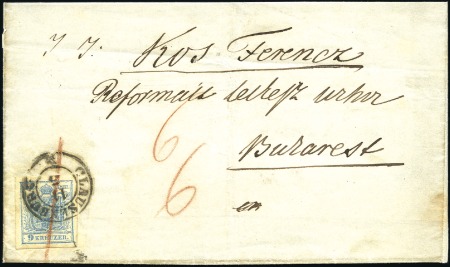 T. T. Kos Ferencz
Reformáti lelkész urhoz
Bukarest
en
6
6
CLAUSENBURG
9 KREUZER